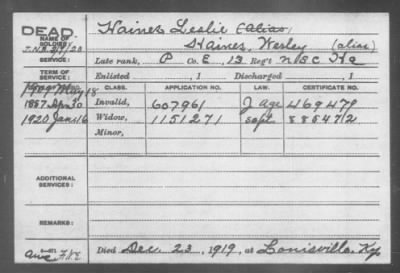 DEAD.
NAME OF SOLDIER:
Haines Leslie (alias)
Haines, Wesley (alias)
SERVICE:
Late rank, P Co. E, 13 Reg't U S C H a
TERM OF SERVICE:
Enlisted , 1 Discharged , 1
CLASS. APPLICATION NO. LAW. CERTIFICATE NO.
May 18
1887 Apr 30 Invalid, 607961 J age 469479
1920 Jan 16 Widow, 1151271 Sept 885472
Minor,
ADDITIONAL SERVICES:
REMARKS:
Died Dec. 23, 1919, at Louisville, Ky